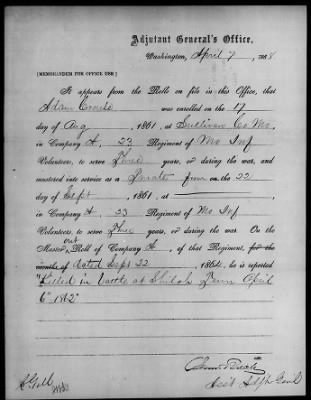 Adjutant General's Office,
Washington, April 7, 1868
[MEMORANDUM FOR OFFICE USE.]
It appears from the Rolls on file in this Office, that
Adam was enrolled on the 17
day of Aug, 1861, at Sullivan Co Mo,
in Company A, 23 Regiment of Mo Inf
Volunteers, to serve Three years, or during the war, and
mustered into service as a Private from on the 22
day of Sept, 1861, at
in Company A, 23 Regiment of Mo Inf
Volunteers, to serve Three years, or during the war. On the
Muster out Roll of Company A, of that Regiment, for the
months of dated Sept 22, 1864, he is reported
"Killed in battle at Shiloh Tenn April
6" 1862"
Asst Adjt Genl